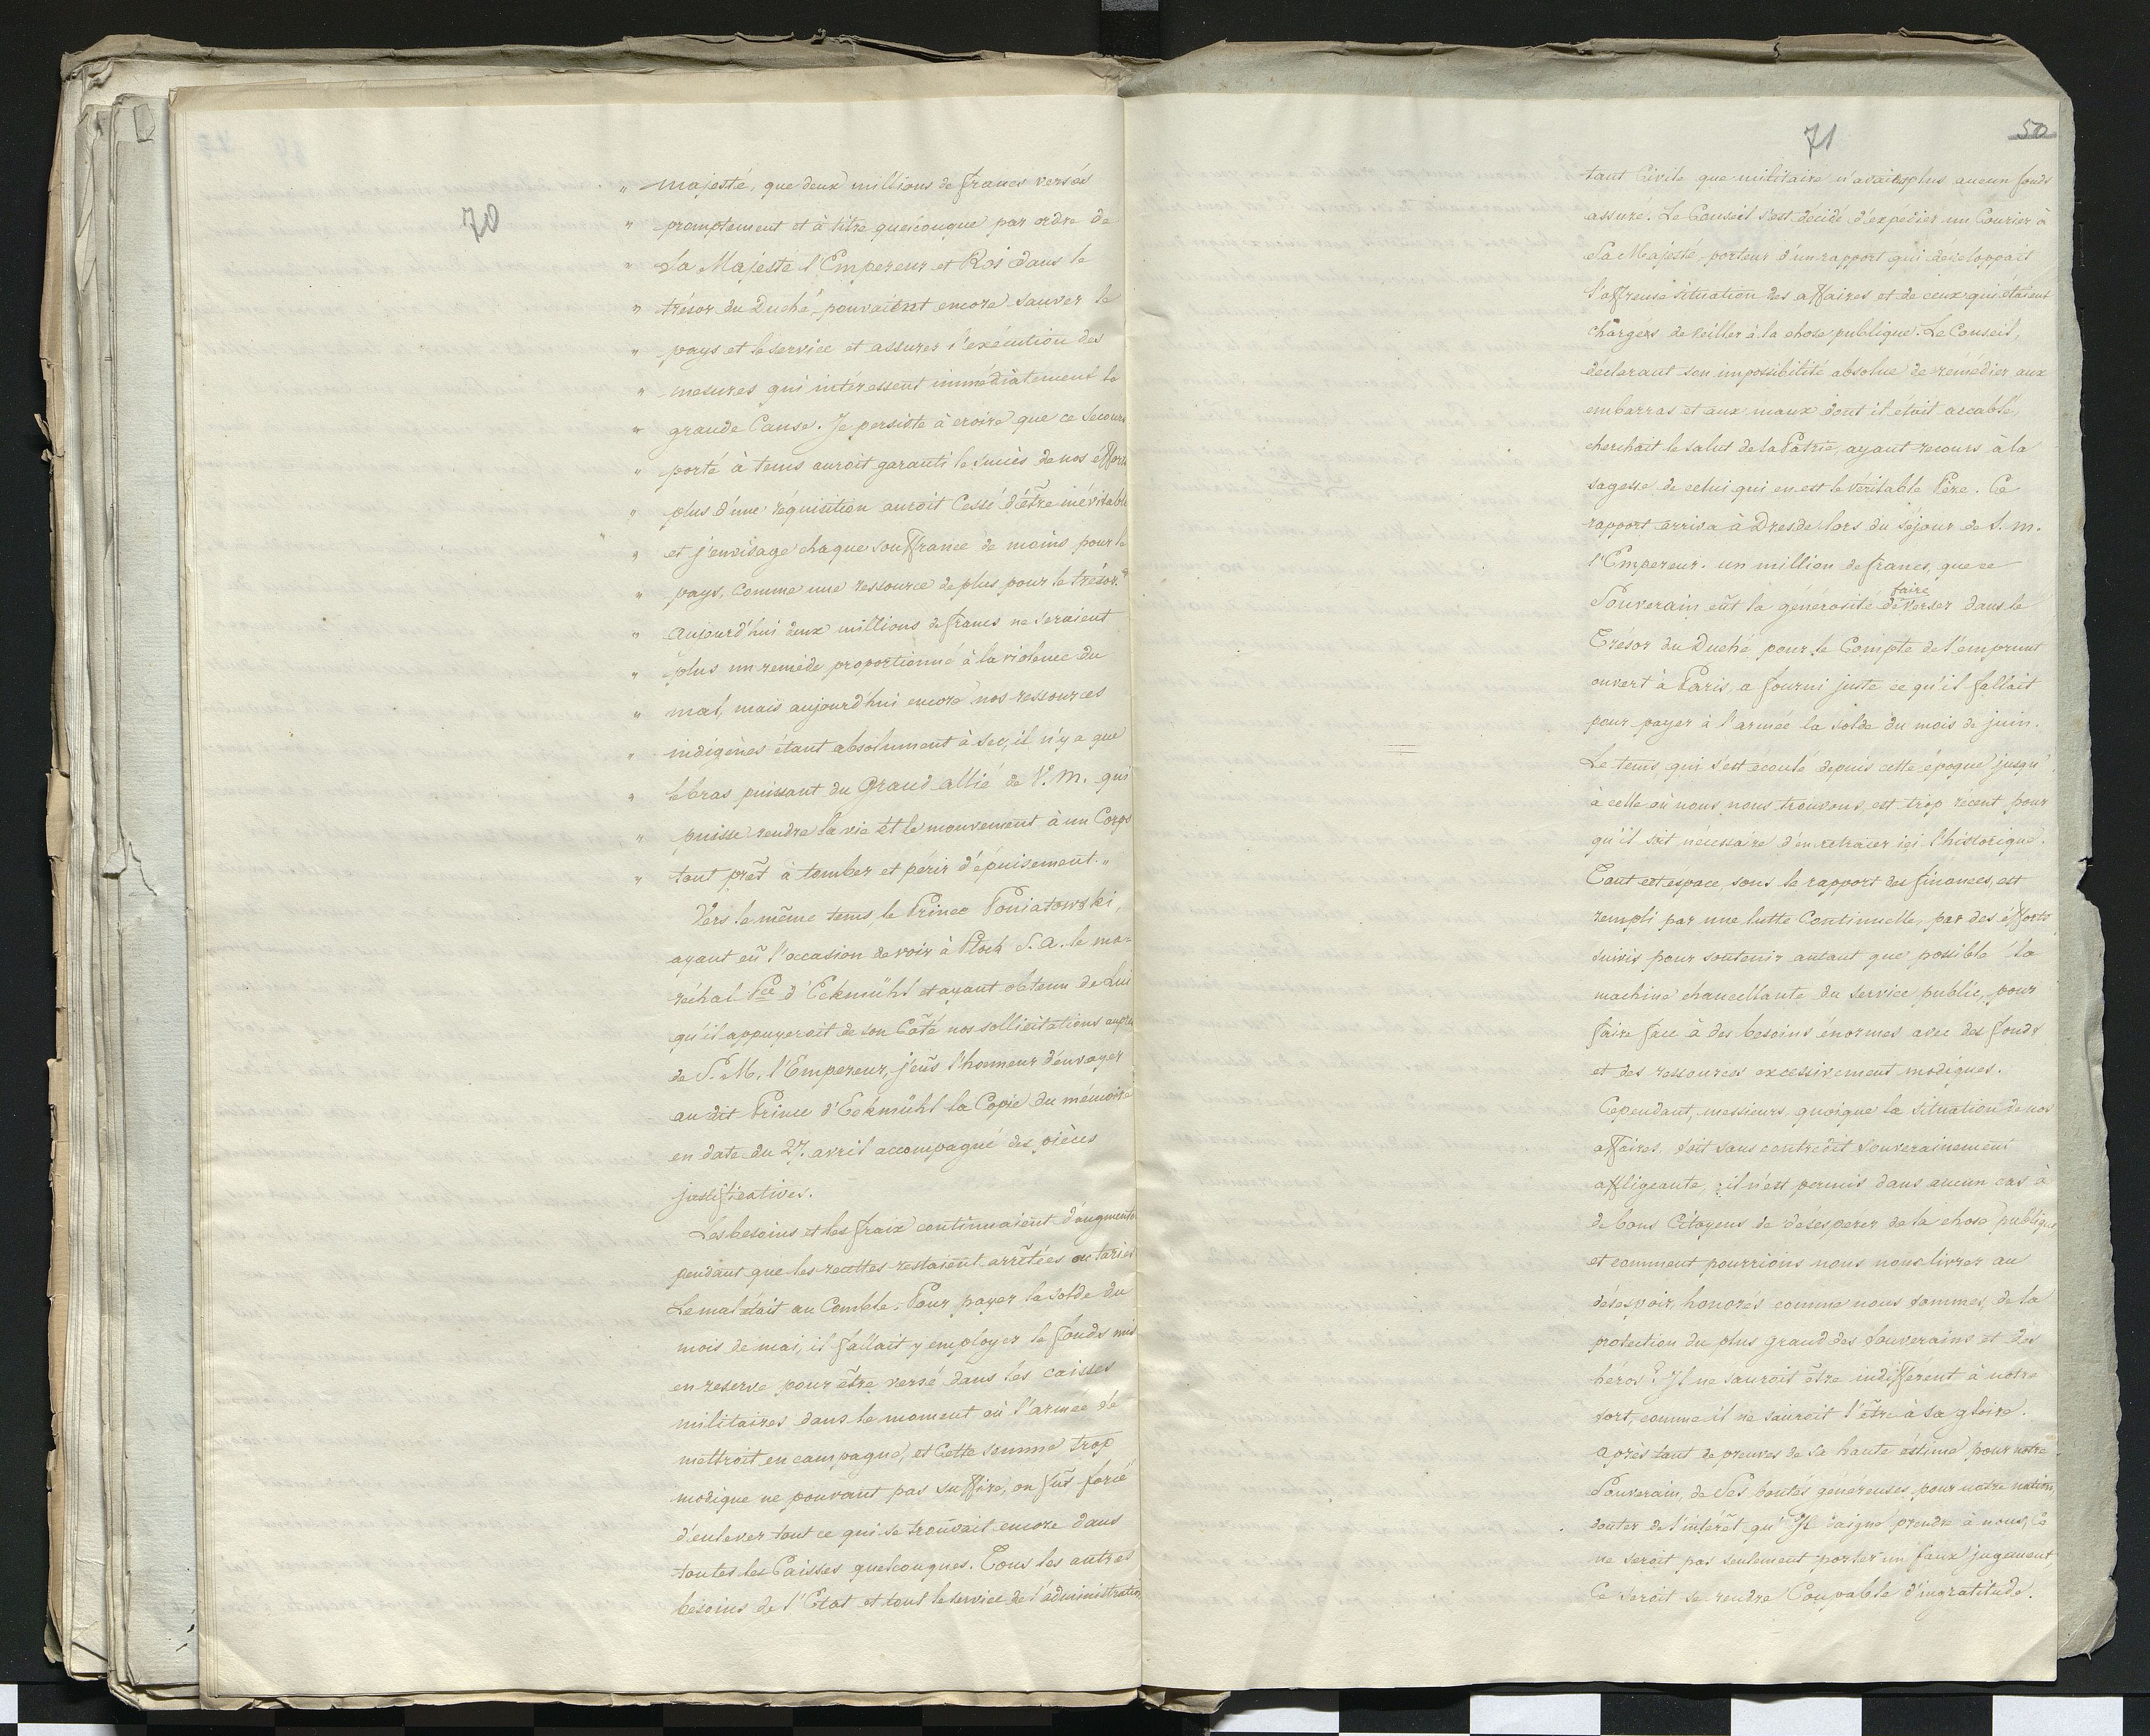 70
„ majesté, que deux millions de francs versés
„ promptement et à titre quelconque par ordre de
„ Sa Majesté l'Empereur et Roi dans le
„ trésor du Duché, pouvaient encore sauver le
„ pays et le service et assurer l'exécution des
„ mesures qui intéressent immédiatement la
„ grande Cause. Je persiste à croire que ce secours
„ porté à tems auroit garanti le succès de nos éfforts
„ plus d'une réquisition auroit Cessé d'être inévitable
„ et j'envisage chaque souffrance de moins pour le
„ pays, comme une ressource de plus pour le trésor."
„ aujourd'hui deux millions de francs ne seraient
„ plus un remède proportionné à la violence du
„ mal, mais aujourd'hui encore nos ressources
„ indigènes étant absolument à sec, il n'y a que
„ le bras puissant du Grand allié de V. M. qui
„ puisse rendre la vie et le mouvement à un Corps
„ tout prêt à tomber et périr d'épuisement. „
Vers le même tems, le Prince Poniatowski,
ayant eû l'occasion de voir à Plock S. A. le ma=
réchal Pce d'Eckmühl et ayant obtenu de Lui
qu'il appuyeroit de son Côté nos sollicitations auprès
de S. M. l'Empereur, j'eûs l'honneur d'envoyer
au dit Prince d'Eckmühl la Copie du mémoire
en date du 27. avril accompagné des pièces
justificatives.
Les besoins et les fraix continuaient d'augmenter
pendant que les recettes restaient arrêtées ou taries
Le mal était au Comble. Pour payer la solde du
mois de mai, il fallait y employer le fonds mis
en reserve pour être versé dans les caisses
militaires dans le moment où l'armée se
mettroit en campagne, et Cette somme trop
modique ne pouvant pas suffire, on fut forcé
d'enlever tout ce qui se trouvait encore dans
toutes les Caisses quelconques. Tous les autres
besoins de l'Etat et tout le service de l'administration
71
50
tant Civile que militaire n'avaient plus aucun fonds
assuré. Le Conseil s'est décidé d'expedier un Courier à
Sa Majesté, porteur d'un rapport qui développait
l'affreuse situation des affaires et de ceux qui étaient
chargés de veiller à la chose publique. Le Conseil,
déclarant son impossibilité absolue de rémédier aux
embarras et aux maux dont il étoit accablé,
cherchait le salut de la Patrie, ayant recours à la
sagesse de celui qui en est le véritable Père. Ce
rapport arriva à Dresde lors du séjour de S. M.
l'Empereur. un million de francs, que ce
Souverain eût la générosité de faire verser dans le
Tresor du Duché pour le Compte de l'emprunt
ouvert à Paris, a fourni juste ce qu'il fallait
pour payer à l'armée la solde du mois de juin.
Le tems, qui s'est écoulé depuis cette époque jusqu'
à celle où nous nous trouvons, est trop récent pour
qu'il soit nécessaire d'en retracer ici l'historique.
Tout cet espace, sous le rapport des finances, est
rempli par une lutte Continuelle, par des éfforts
suivis pour soutenir autant que possible la
machine chancellante du service public, pour
faire face à des besoins énormes avec des fonds
et des ressources excessivement modiques.
Cependant, messieurs, quoique la situation de nos
affaires, soit sans contredit souverainement
affligeante, il n'est permis dans aucun cas à
de bons Citoyens de désespérer de la chose publique,
et comment pourrions nous nous livrer au
désespoir, honorés comme nous sommes, de la
protection du plus grand des Souverains et des
héros? Il ne sauroit être indifférent à notre
sort, comme il ne sauroit l'être à sa gloire.
Après tant de preuves de sa haute éstime pour notre
Souverain, de Ses bontés généreuses pour notre nation,
douter de l'intérêt qu'Il daigne prendre à nous, Ce
ne seroit pas seulement porter un faux jugement,
Ce seroit se rendre Coupable d'ingratitude.